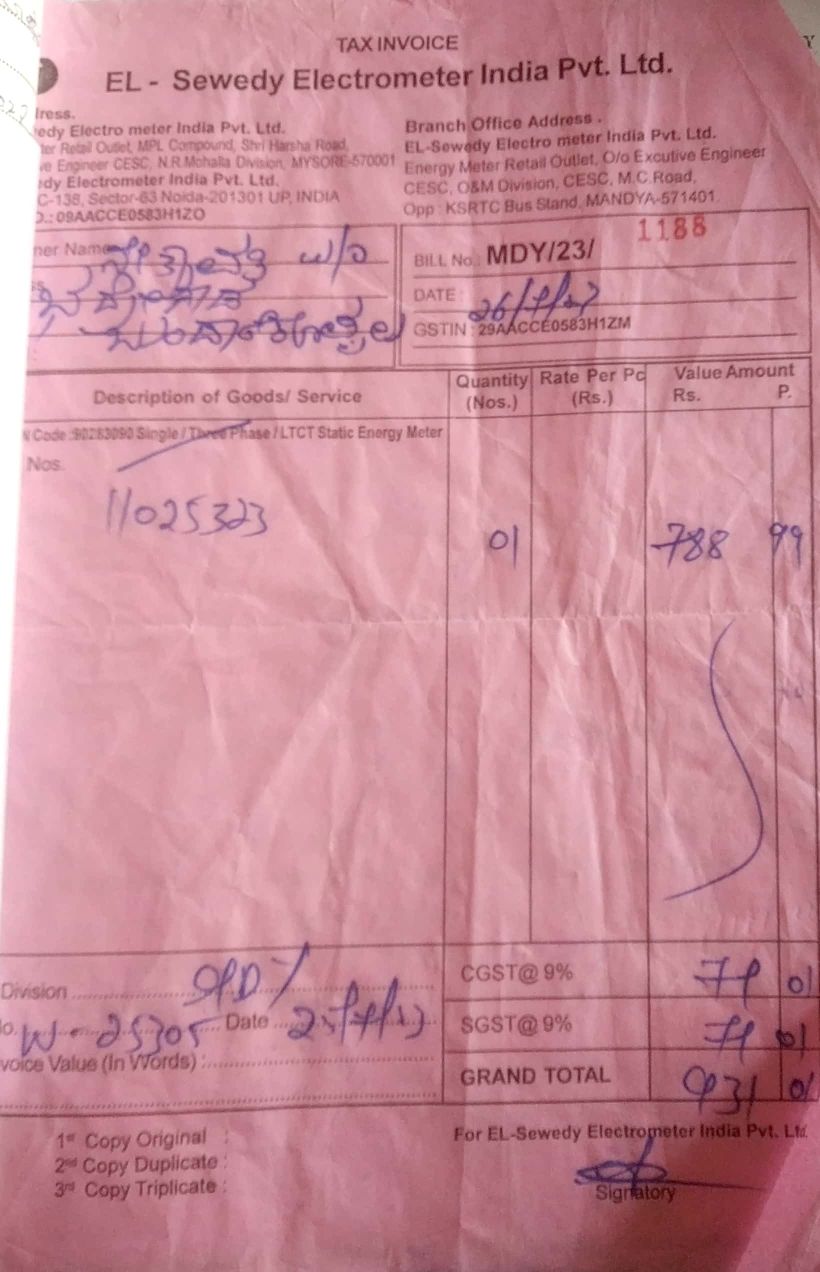 TAX INVOICE
EL - Sewedy Electrometer India Pvt. Ltd.
Iress.
edy Electro meter India Pvt. Ltd.
ter Retail Outlet, MPL Compound, Shri Harsha Road,
ve Engineer CESC, N.R.Mohalla Division, MYSORE-570001
dy Electrometer India Pvt. Ltd.
C-138, Sector-63 Noida-201301 UP, INDIA
D.: 09AACCE0583H1ZO
Branch Office Address .
EL-Sewedy Electro meter India Pvt. Ltd.
Energy Meter Retail Outlet, O/o Excutive Engineer
CESC, O&M Division, CESC, M.C.Road,
Opp : KSRTC Bus Stand, MANDYA-571401.
ner Name w/o
BILL No.: MDY/23/ 1188
DATE : 26/7/23
GSTIN : 29AACCE0583H1ZM
Description of Goods/ Service Quantity (Nos.) Rate Per Pc (Rs.) Value Amount Rs. P.
N Code :90283090 Single / Three Phase / LTCT Static Energy Meter
Nos.
11025323 01 788 99
Division CGST@ 9% 71 01
o. W - 25305 Date 25/7/23 SGST@ 9% 71 01
voice Value (In Words) : GRAND TOTAL 931 01
1st Copy Original :
2nd Copy Duplicate :
3rd Copy Triplicate :
For EL-Sewedy Electrometer India Pvt. Ltd.
Signatory